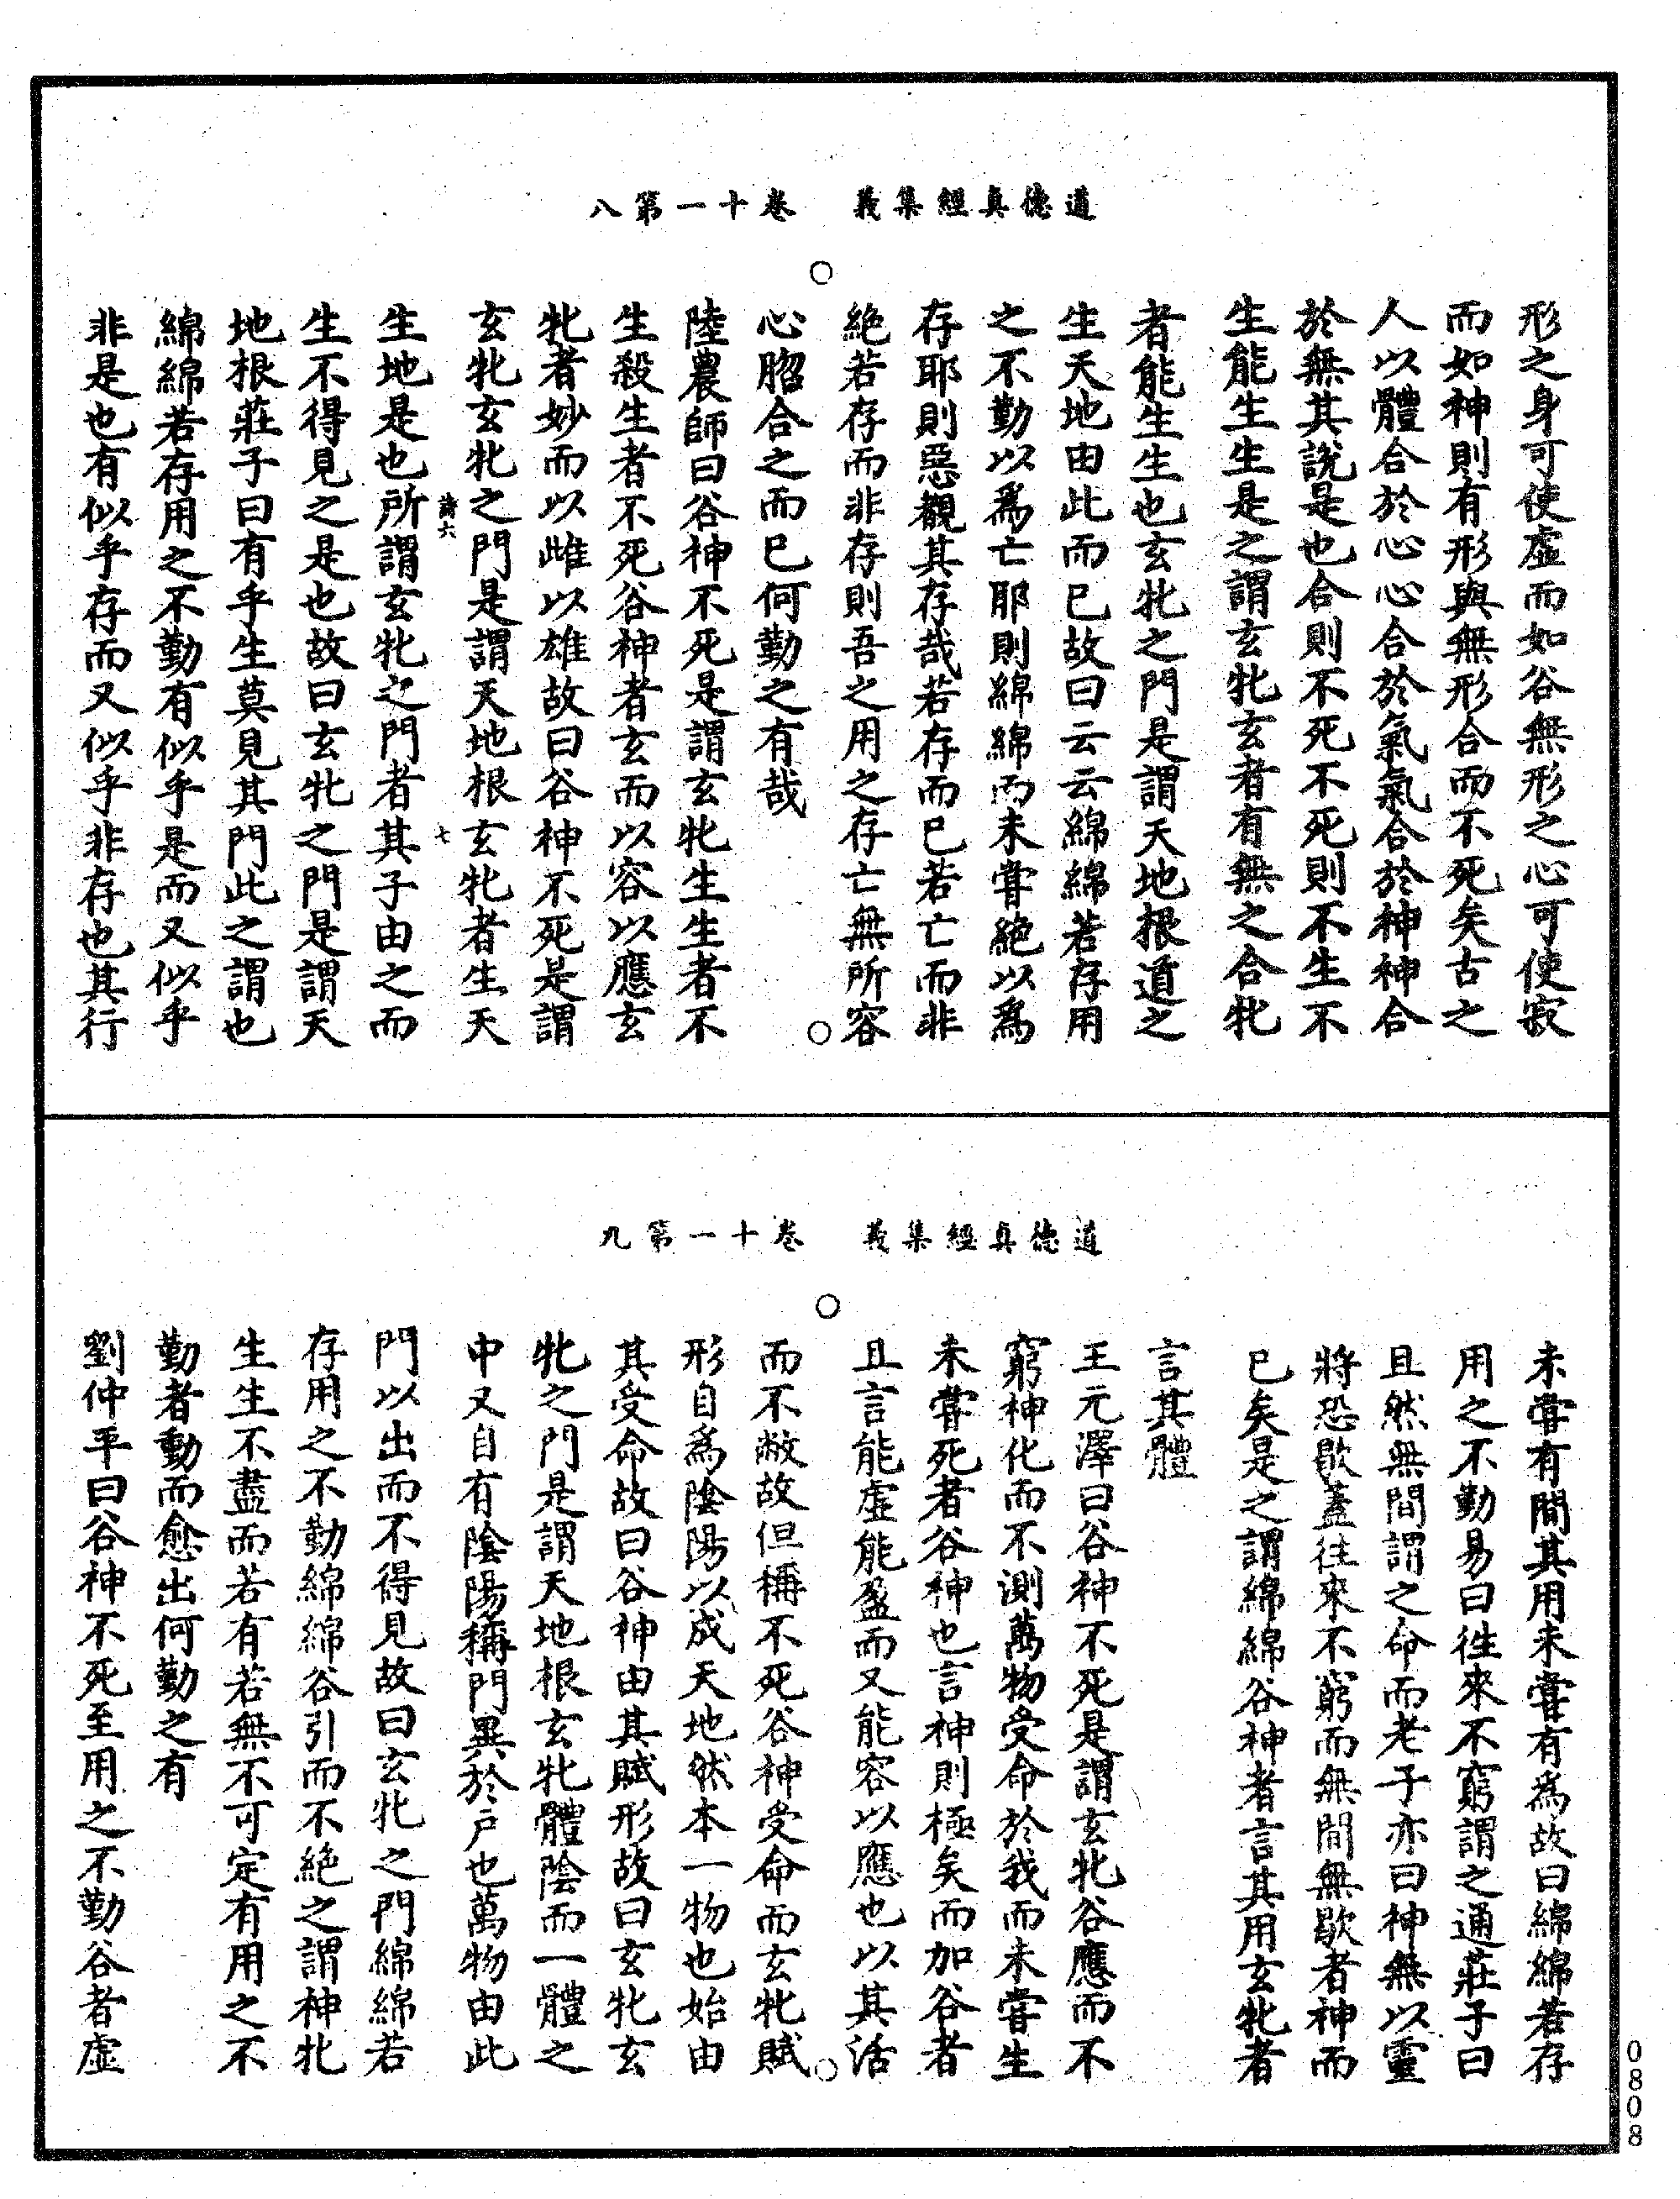 道德真經集義　卷十一第八
形之身可使虛而如谷無形之心可使寂
而如神則有形與無形合而不死矣古之
人以體合於心心合於氣氣合於神神合
於無其說是也合則不死不死則不生不
生能生生是之謂玄牝玄者有無之合牝
者能生生也玄牝之門是謂天地根道之
生天地由此而已故曰云云綿綿若存用
之不勤以為亡耶則綿綿而未嘗絕以為
存耶則惡覩其存哉若存而已若亡而非
絕若存而非存則吾之用之存亡無所容
心㬰合之而已何勤之有哉
陸農師曰谷神不死是謂玄牝生生者不
生殺生者不死谷神者玄而以容以應玄
牝者妙而以雌以雄故曰谷神不死是謂
玄牝玄牝之門是謂天地根玄牝者生天
詩六
七
生地是也所謂玄牝之門者其子由之而
生不得見之是也故曰玄牝之門是謂天
地根莊子曰有乎生莫見其門此之謂也
綿綿若存用之不勤有似乎是而又似乎
非是也有似乎存而又似乎非存也其行
道德真經集義　卷十一第九
未嘗有間其用未嘗有為故曰綿綿若存
用之不勤易曰往來不窮謂之通莊子曰
且然無間謂之命而老子亦曰神無以靈
將恐歇蓋往來不窮而無間無歇者神而
已矣是之謂綿綿谷神者言其用玄牝者
言其體
王元澤曰谷神不死是謂玄牝谷應而不
窮神化而不測萬物受命於我而未嘗生
未嘗死者谷神也言神則極矣而加谷者
且言能虛能盈而又能容以應也以其活
而不敝故但稱不死谷神受命而玄牝賦
形自為陰陽以成天地然本一物也始由
其受命故曰谷神由其賦形故曰玄牝玄
牝之門是謂天地根玄牝體陰而一體之
中又自有陰陽稱門異於戶也萬物由此
門以出而不得見故曰玄牝之門綿綿若
存用之不勤綿綿谷引而不絕之謂神牝
生生不盡而若有若無不可定有用之不
勤者動而愈出何勤之有
劉仲平曰谷神不死至用之不勤谷者虛
0808